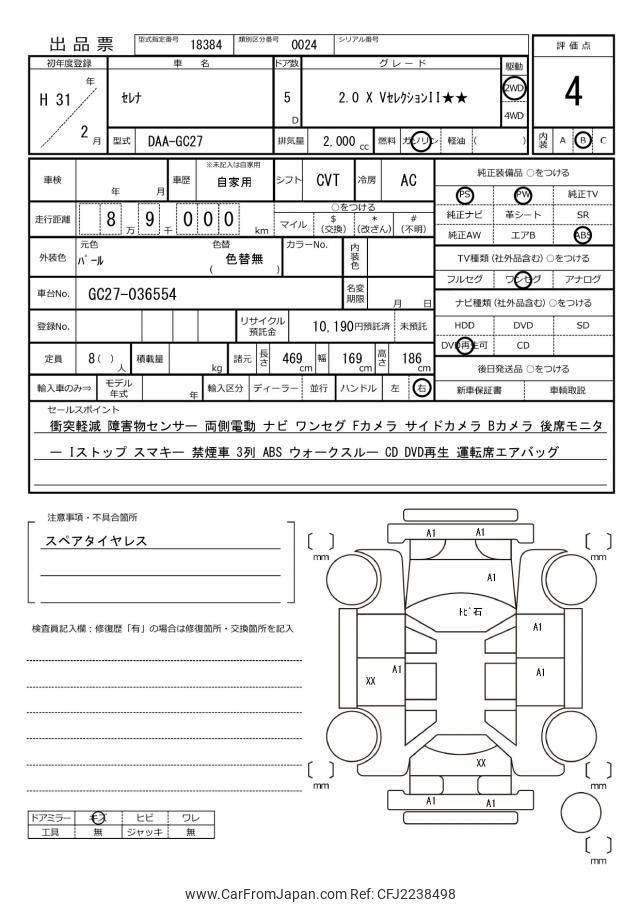 出品票 型式指定番号 18384 類別区分番号 0024 シリアル番号
評価点
4
内装 A B C
初年度登録 車名 ドア数 グレード 駆動
H 31 年 2 月
セレナ 5 D 2.0 X VセレクションII★★ 2WD
4WD
型式 DAA-GC27 排気量 2,000 cc 燃料 ガソリン 軽油 ( )
車検 年 月 車歴 ※未記入は自家用 自家用 シフト CVT 冷房 AC
走行距離 8 万 9 千 0 0 0 km
○をつける
マイル $ (交換) * (改ざん) # (不明)
外装色 元色 パール 色替 色替無 ( ) カラーNo. 内装色
車台No. GC27-036554 名変期限 月 日
登録No. リサイクル預託金 10,190円預託済 未預託
定員 8( ) 人 積載量 kg 諸元 長さ 469 cm 幅 169 cm 高さ 186 cm
輸入車のみ⇒ モデル年式 年 輸入区分 ディーラー 並行 ハンドル 左 右
純正装備品 ○をつける
PS PW 純正TV
純正ナビ 革シート SR
純正AW エアB ABS
TV種類 (社外品含む) ○をつける
フルセグ ワンセグ アナログ
ナビ種類 (社外品含む) ○をつける
HDD DVD SD
DVD再生可 CD
後日発送品 ○をつける
新車保証書 車輌取説
セールスポイント
衝突軽減 障害物センサー 両側電動 ナビ ワンセグ Fカメラ サイドカメラ Bカメラ 後席モニタ
ー Iストップ スマキー 禁煙車 3列 ABS ウォークスルー CD DVD再生 運転席エアバッグ
注意事項・不具合箇所
スペアタイヤレス
検査員記入欄：修復歴「有」の場合は修復箇所・交換箇所を記入
ドアミラー キズ ヒビ ワレ
工具 無 ジャッキ 無
A1 A1
mm mm
A1
トビ石
A1
XX A1 A1
XX
mm mm
A1 A1
mm
www.CarFromJapan.com Ref: CFJ2238498